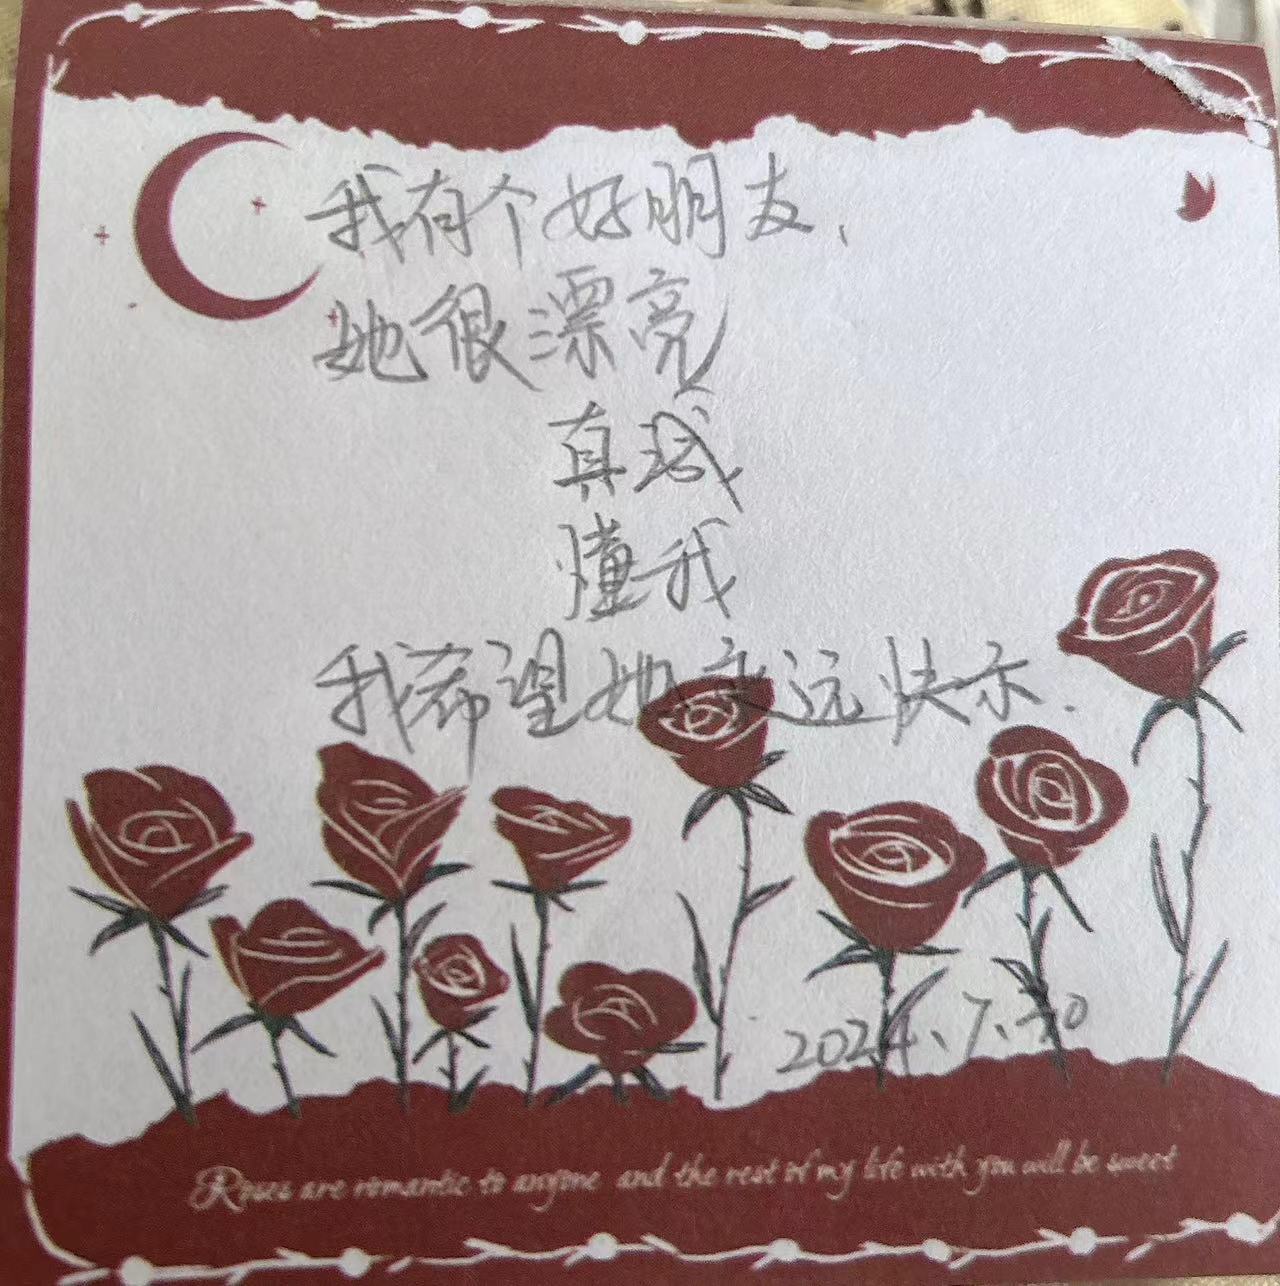 我有个好朋友、
她很漂亮
真诚
懂我
我希望她永远快乐.
2024.7.30
Roses are romantic to anyone and the rest of my life with you will be sweet